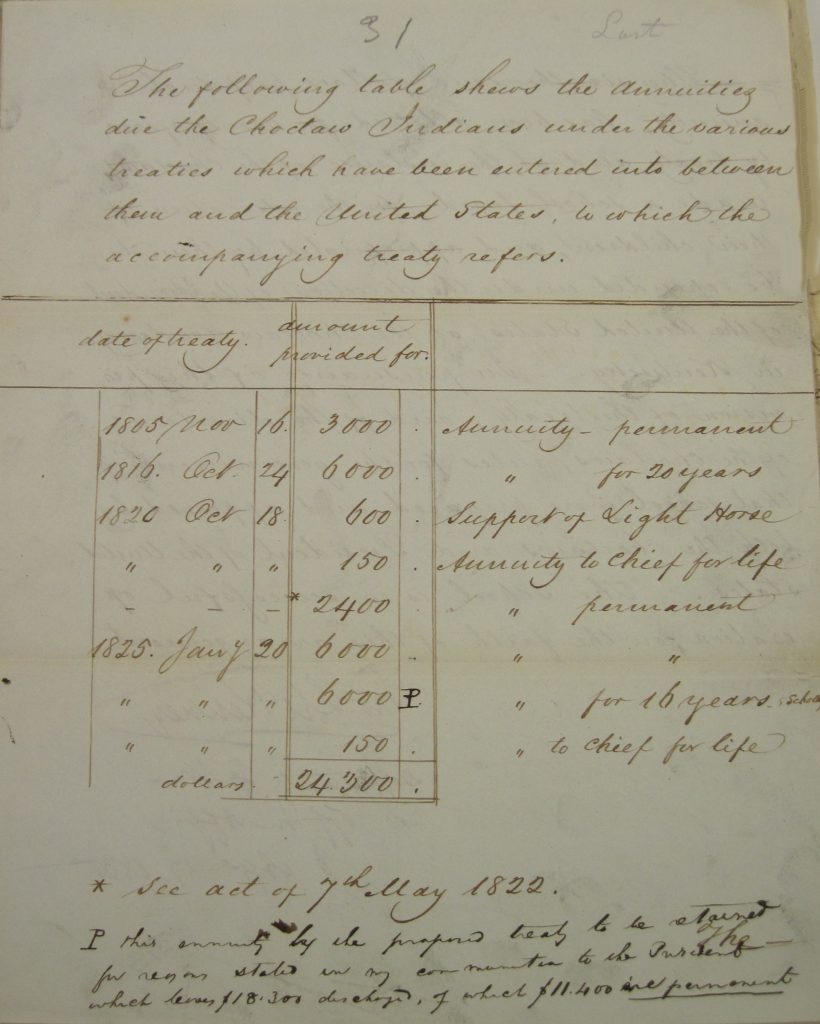 31 Last
The following table shews the annuities
due the Choctaw Indians under the various
treaties which have been entered into between
them and the United States, to which the
accompanying treaty refers.
date of treaty. amount provided for.
1805 Nov 16. 3000 . Annuity - permanent
1816. Oct. 24 6000 . " for 20 years
1820 Oct 18. 600 . Support of Light Horse
" " " 150 . Annuity to Chief for life
- - - * 2400 . " permanent
1825. Jany 20 6000 . " "
" " " 6000 P. " for 16 years.
" " " 150 . " to Chief for life
dollars. 24.300 .
* See act of 7th May 1822.
P this annuity by the proposed treaty to be retained
for reasons stated in my communication to the President
The —
which leaves $18.300 discharged, of which $11.400 are permanent